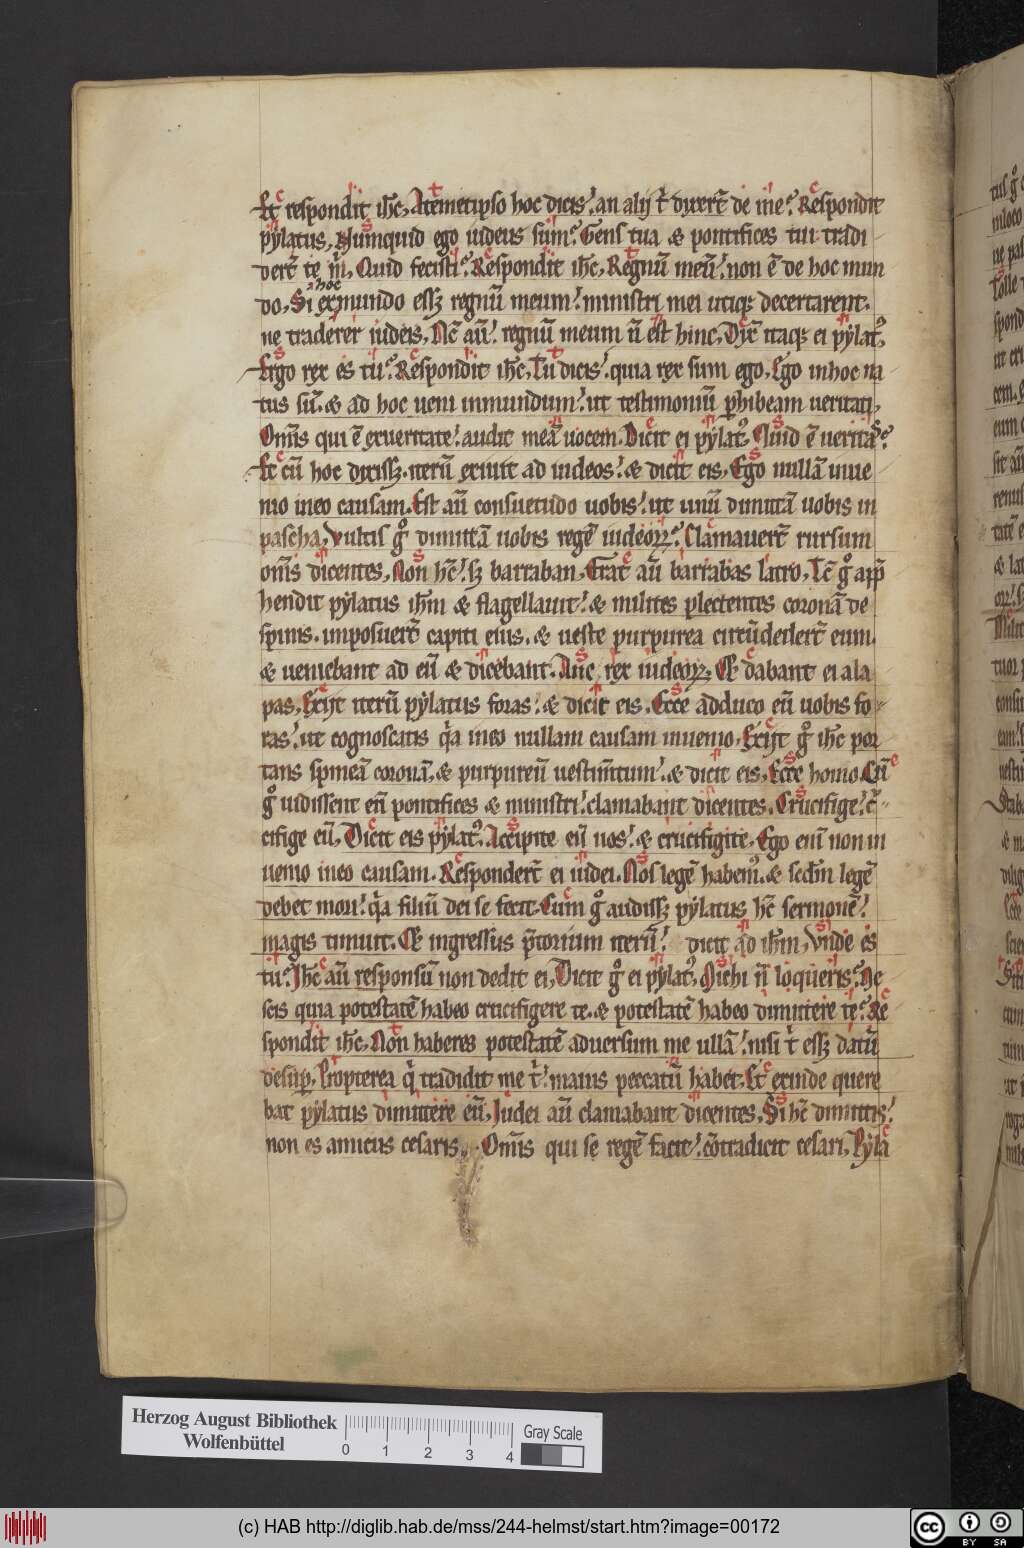 Et respondit ih̅c, Atemetipso hoc dicis? an alij t̕ dixert̅ de me? Respondit
pylatus, Numquid ego iudeus sum? Gens tua & pontifices tui tradi
dert̅ te m̕, Quid fecisti? Respondit ih̅c, Regnu̅ meu̅! non e̅ de hoc mun
do, Si ex hoc mundo essꝫ regnu̅ meum! ministri mei utiqꝫ decertarent.
ne traderer iudeis, Nc̅ au̅! regnu̅ meum n̅ est hinc, Dix̅ itaqꝫ ei pylatꝰ,
Ergo rex es tu? Respondit ih̅c, Tu dicis! quia rex sum ego, Ego inhoc na
tus su̅. & ad hoc ueni inmundum! ut testimoniu̅ ꝑhibeam ueritati,
Om̅is qui e̅ exueritate! audit mea̅ uocem. Dicit ei pylatꝰ, Quid e̅ ueritas?
Et cu̅ hoc dixissꝫ. iteru̅ exiuit ad iudeos! & dicit eis, Ego nulla̅ inue
nio ineo causam. Est au̅ consuetudo uobis! ut unu̅ dimitta̅ uobis in
pascha, Vultis gͦ dimitta̅ uobis rege̅ iudeoꝝ? Clamauert̅ rursum
om̅is dicentes, Non hc̅! sꝫ barraban, Erat au̅ barrabas latro, Tc̅ gͦ app̅
hendit pylatus ih̅m & flagellauit! & milites plectentes corona̅ de
spinis. imposuert̅ capiti eius. & ueste purpurea circu̅dedert̅ eum.
& ueniebant ad eu̅ & dicebant. Aue rex iudeoꝝ, Et dabant ei ala
pas, Exijt iteru̅ pylatus foras! & dicit eis, Ecce adduco eu̅ uobis fo-
ras! ut cognoscatis q̕a ineo nullam causam inuenio, Exijt gͦ ih̅c por
tans spinea̅ corona̅, & purpureu̅ uestim̅tum! & dicit eis, Ecce homo, Cu̅
gͦ uidissent eu̅ pontifices & ministri! clamabant dicentes, Crucifige! c̕-
cifige eu̅, Dicit eis pylatꝰ, Accipite eu̅ uos! & crucifigite, Ego eni̅ non in
uenio ineo causam. Respondert̅ ei iudei. Nos lege̅ habemꝰ. & scd̅m lege̅
debet mori! q̕a filiu̅ dei se fecit. Cum gͦ audissꝫ pylatus hc̅ sermone̅!
magis timuit. Et ingressus p̅torium iteru̅! dicit ad ih̅m, Vnde es
tu? Ih̅c au̅ responsu̅ non dedit ei, Dicit gͦ ei pylatꝰ, Michi n̅ loqueris? Ne
scis quia potestate̅ habeo crucifigere te. & potestate̅ habeo dimittere te? Re
spondit ih̅c, Non haberes potestate̅ aduersum me ulla̅! nisi t̕ essꝫ datu̅
desuꝑ, Propterea q̕ tradidit me t̕! maius peccatu̅ habet. Et exinde quere
bat pylatus dimittere eu̅, Iudei au̅ clamabant dicentes, Si hc̅ dimittis!
non es amicus cesaris. Om̅is qui se rege̅ facit! co̅tradicit cesari, Pyla
Herzog August Bibliothek
Wolfenbüttel
0 1 2 3 4
Gray Scale
(c) HAB http://diglib.hab.de/mss/244-helmst/start.htm?image=00172
cc BY SA